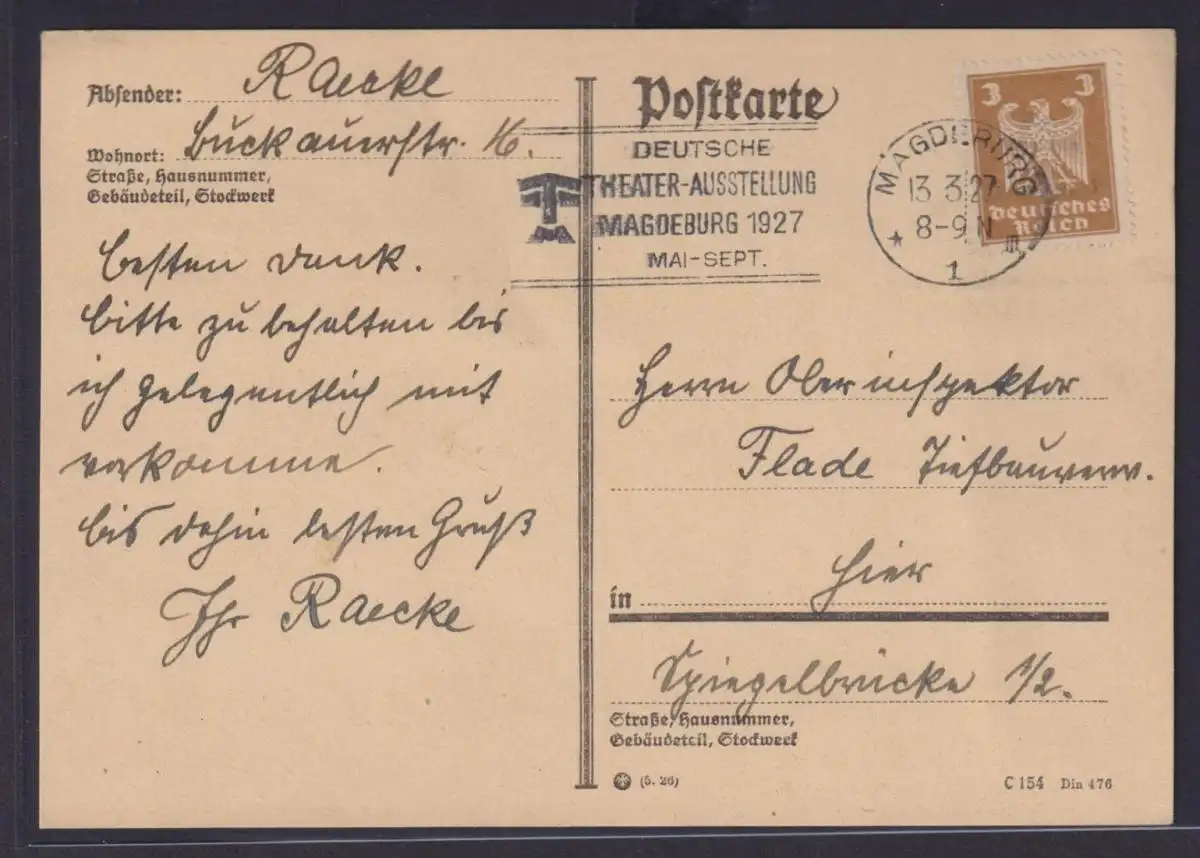 Absender: Raecke
Buckauerstr. 16.
Wohnort:
Straße, Hausnummer,
Gebäudeteil, Stockwerk
besten Dank.
bitte zu behalten bis
ich gelegentlich mit
vorkomme.
bis dahin besten Gruß
Ihr Raecke
Postkarte
DEUTSCHE
THEATER-AUSSTELLUNG
MAGDEBURG 1927
MAI-SEPT.
MAGDEBURG
13 3 27
8-9 N
* 1 m
3 3
Deutsches
Reich
Herrn Oberinspektor
Flade Tiefbauverw.
in hier
Spiegelbrücke 1/2.
Straße, Hausnummer,
Gebäudeteil, Stockwerk
(5. 26)
C 154 Din 476